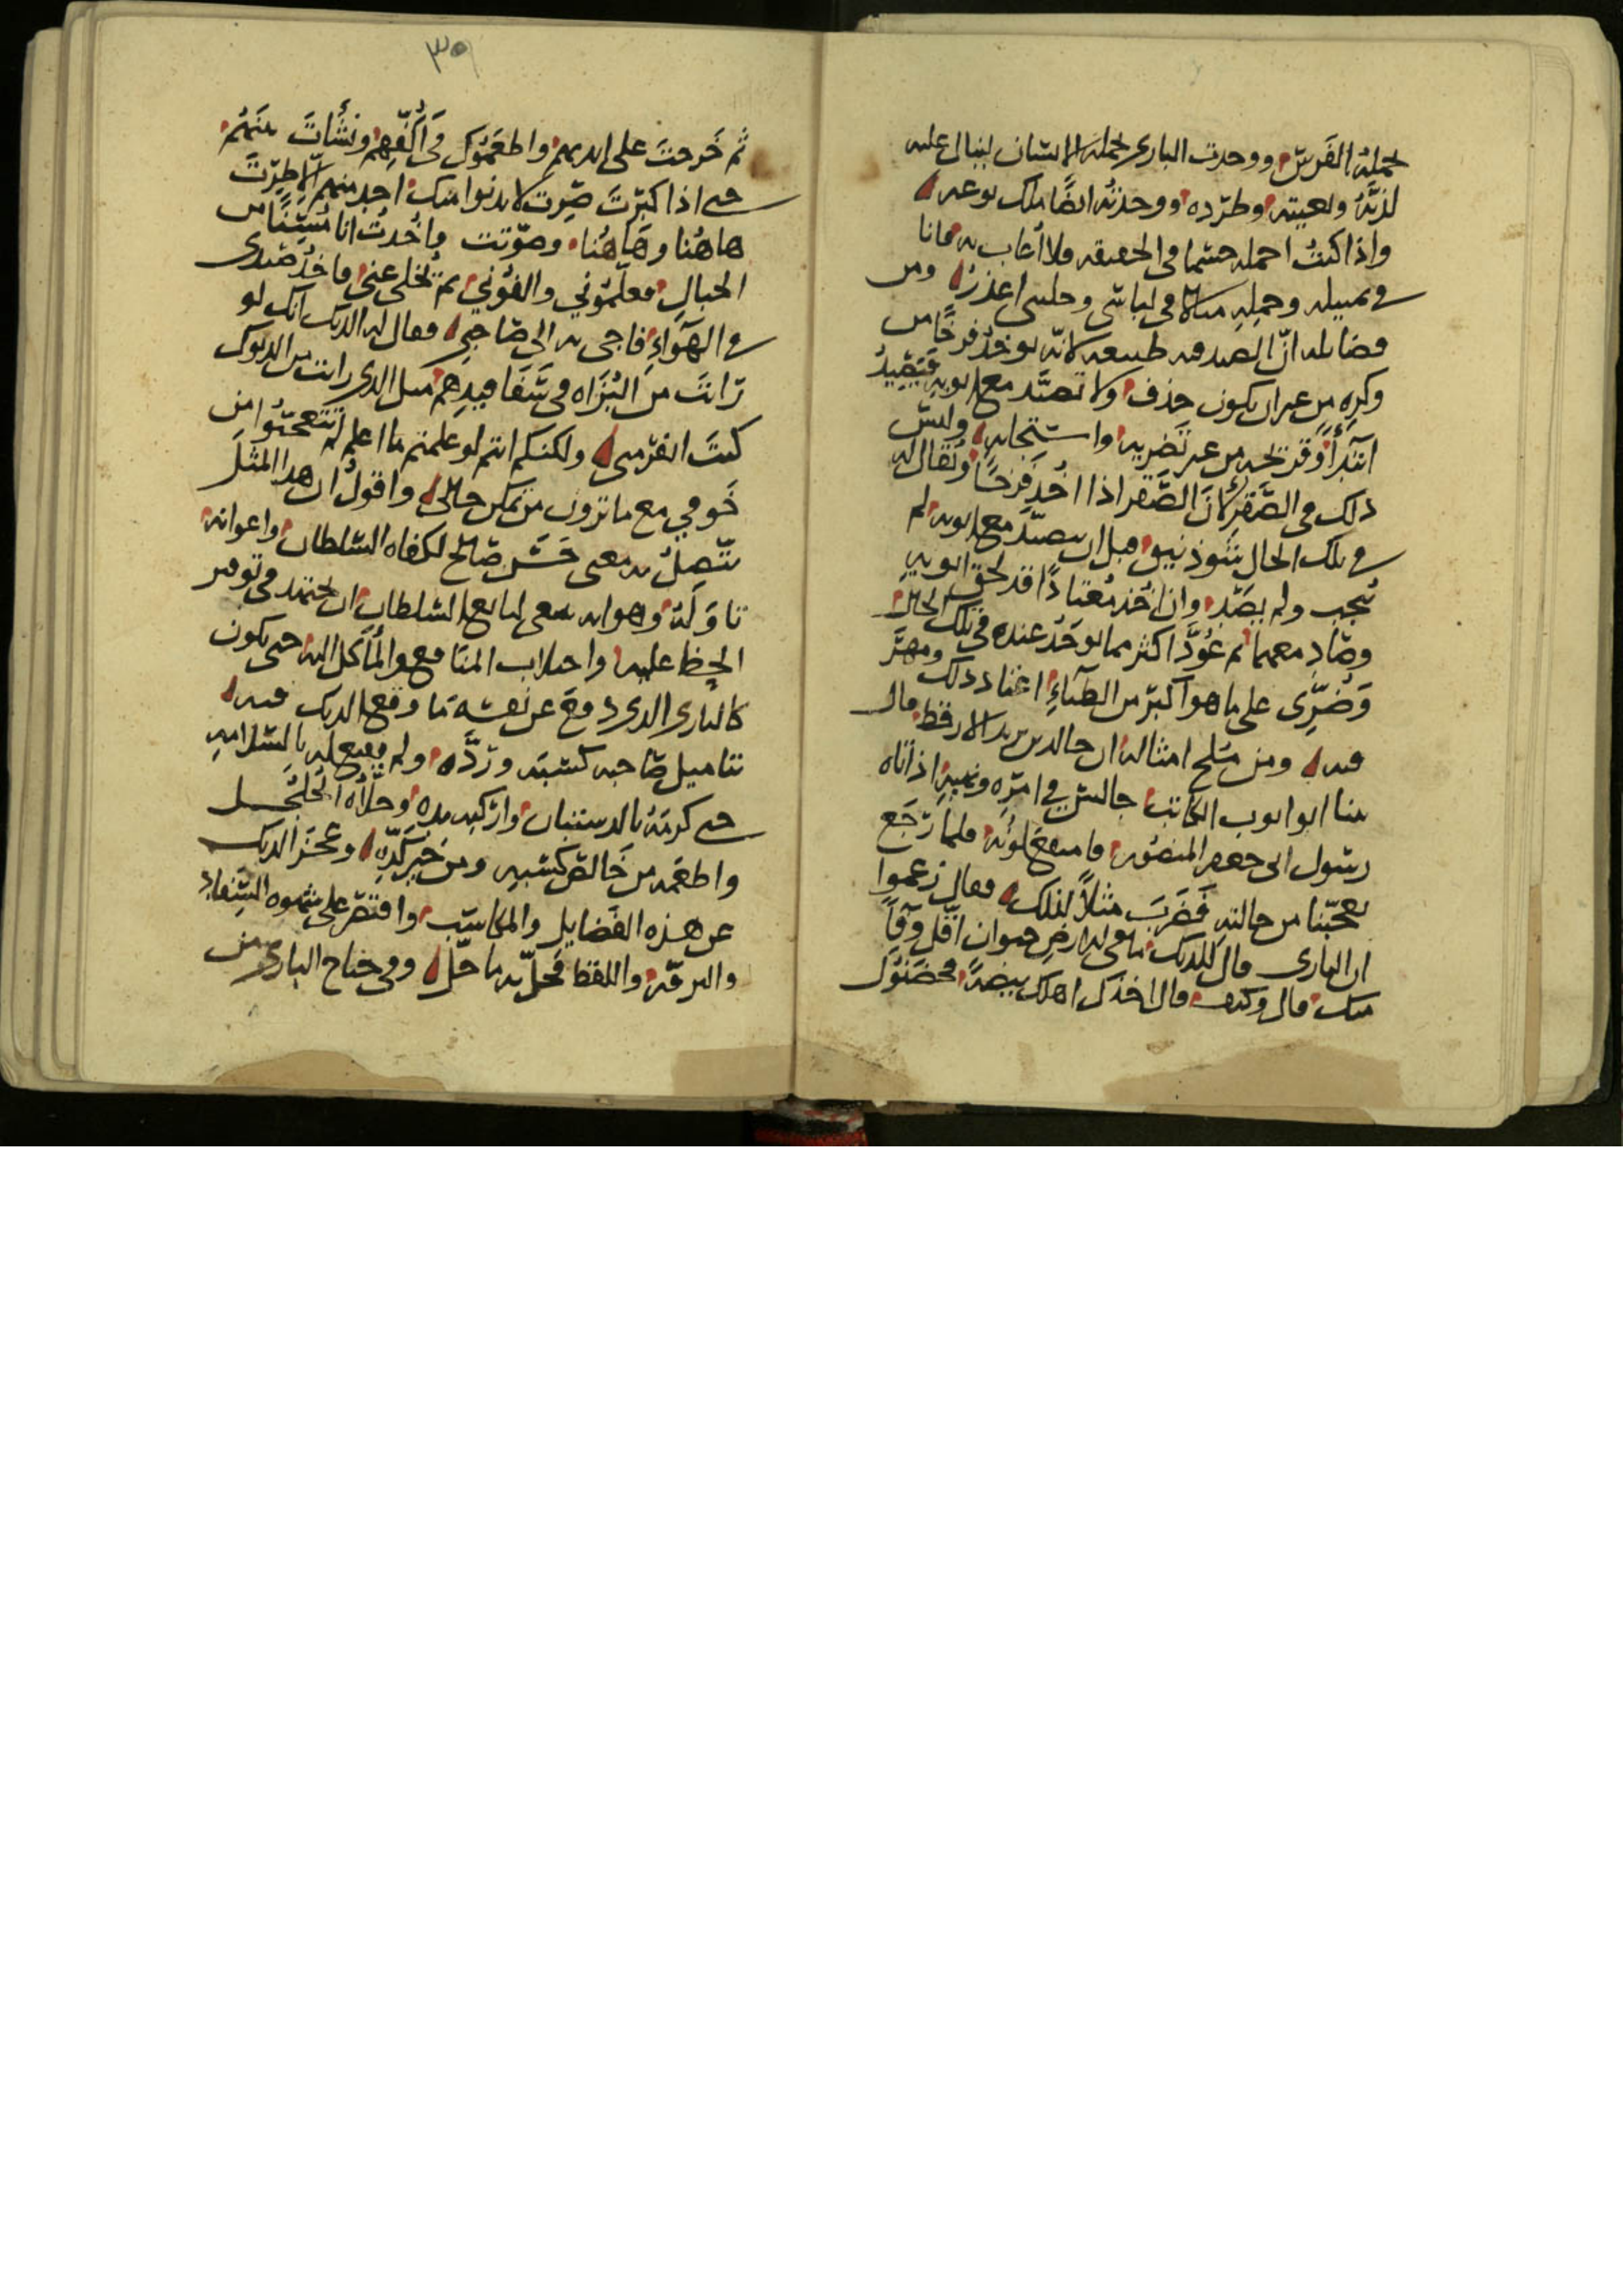 يحمله الفرس ووجدت البازي يحمله الانسان لينال عليه
لذته ولعبته وطرده ووجدته ايضا ملك نوعه
واذا كنت احمله حشما في الحقيقه ولا اعاب به فانا
في تمييله وحمله مثلا في لباسي وجليسي اعذر ومن
فضايله ان الصيد فيه طبيعه لانه يوخذ فرخا من
وكره من غير ان يكون حذف ولا تصيد مع ابويه فيصيد
ابتدا وقريحه من غير تضريه واستجابه وليس
ذلك في الصقر لان الصقر اذا اخذ فرخا ويقال له
في تلك الحال قبل ان يصيد مع ابويه لم
ينجب ولم يصد وان اخذ معتادا قد لحق ابويه
وصاد معهما ثم عود اكثر مما يوخذ عنده في تلك الحال
وضري على ما هو اكبر من الظباء اعتاد ذلك ومهر
فيه ومن ملح امثاله ان خالد بن يزيد الارقط قال
بينا ابو ايوب الكاتب جالس في امره ونهيه اذ اتاه
رسول ابي جعفر المنصور فامتقع لونه فلما رجع
تعجبنا من حالته فضرب مثلا لذلك فقال زعموا
ان البازي قال للديك ما في الارض حيوان اقل وفا
منك قال وكيف قال اخذك اهلك بيضة فحضنوك
٣٥
ثم خرجت على ايديهم واطعموك في اكفهم ونشأت بينهم
حتى اذا كبرت صرت لا يدنوا منك احد منهم الا طرت
هاهنا وهاهنا وصوتت واخذت انا مسنا من
الجبال فعلموني والفوني ثم يخلى عني فاخذ صيدي
في الهواء فاجي به الى صاحبي فقال له الديك انك لو
رايت من البزاه في سفافيدهم مثل الذي رايت من الديوك
كنت انفر مني ولكنكم انتم لو علمتم ما اعلم لم تتعجبوا من
خوفي مع ما ترون من تمكن حالي واقول ان هذا المثل
يتصل به معنى حسن صالح لكفاه السلطان واعوانه
تاوله وهو انه ينبغي لتابع السلطان ان يجتهد في توفير
الحظ عليه واجتلاب المنافع والمأكل اليه حتى يكون
كالبازي الذي دفع عن نفسه ما وقع الديك فيه
بتاميل صاحبه كسبه ورده ولم يقنع له بالسلامه
حتى كرمه بالدستبان واركبه يده وحلاه الجلجل
واطعمه من خالص كسبه ومن خير كده وعجز الديك
عن هذه الفضايل والمكاسب واقتصر على شهوه السفاد
والزقه واللقط فحل به ما حل وفي جناح البازي من